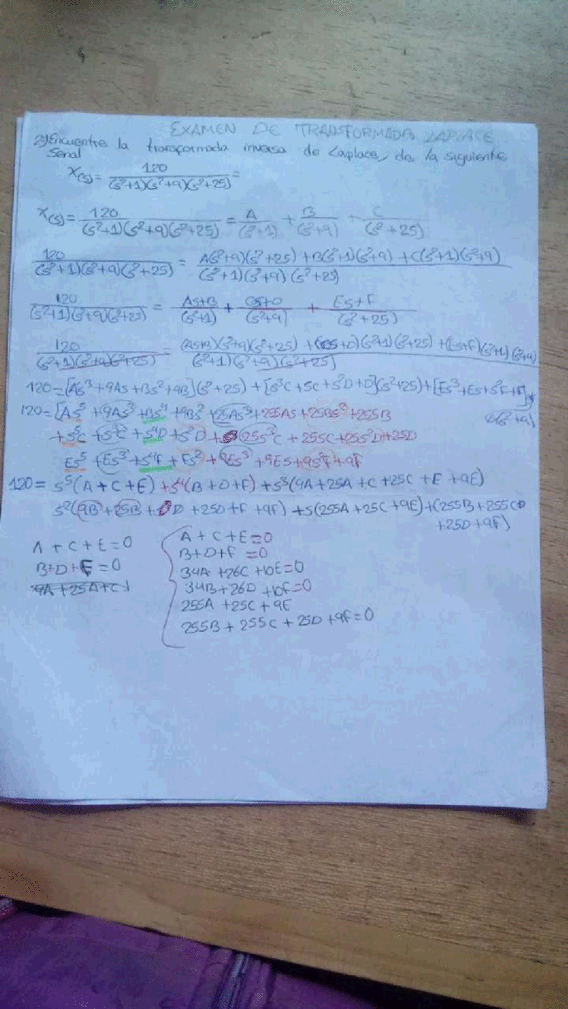 EXAMEN DE TRANSFORMADA LAPLACE
2) Encuentre la transformada inversa de Laplace, de la siguiente
señal
X(s) = 120 / (s²+1)(s²+9)(s²+25) =
X(s) = 120 / (s²+1)(s²+9)(s²+25) = A / (s²+1) + B / (s²+9) + C / (s²+25)
120 / (s²+1)(s²+9)(s²+25) = A(s²+9)(s²+25) + B(s²+1)(s²+9) + C(s²+1)(s²+9) / (s²+1)(s²+9)(s²+25)
120 / (s²+1)(s²+9)(s²+25) = As+B / (s²+1) + Cs+D / (s²+9) + Es+F / (s²+25)
120 / (s²+1)(s²+9)(s²+25) = (As+B)(s²+9)(s²+25) + (Cs+D)(s²+1)(s²+25) + (Es+F)(s²+1)(s²+9) / (s²+1)(s²+9)(s²+25)
120 = [As³+9As+Bs²+9B](s²+25) + [s³C+sC+s²D+D](s²+25) + [Es³+Es+s²F+F]*
(s²+9)
120 = As⁵ + 9As³ + Bs⁴ + 9Bs² + 25As³ + 255As + 25Bs² + 255B
+ s⁵C + s³C + s⁴D + s²D + 25s³C + 25sC + 25s²D + 25D
Es⁵ + Es³ + s⁴F + Fs² + 9Es³ + 9Es + 9s²F + 9F
120 = s⁵(A+C+E) + s⁴(B+D+F) + s³(9A+25A+C+25C+E+9E)
s²(9B+25B+D+25D+F+9F) + s(255A+25C+9E) + (255B+255C
+25D+9F)
A+C+E=0
B+D+F=0
9A+25A+C
A+C+E=0
B+D+F=0
34A+26C+10E=0
34B+26D+10F=0
255A+25C+9E
255B+255C+25D+9F=0